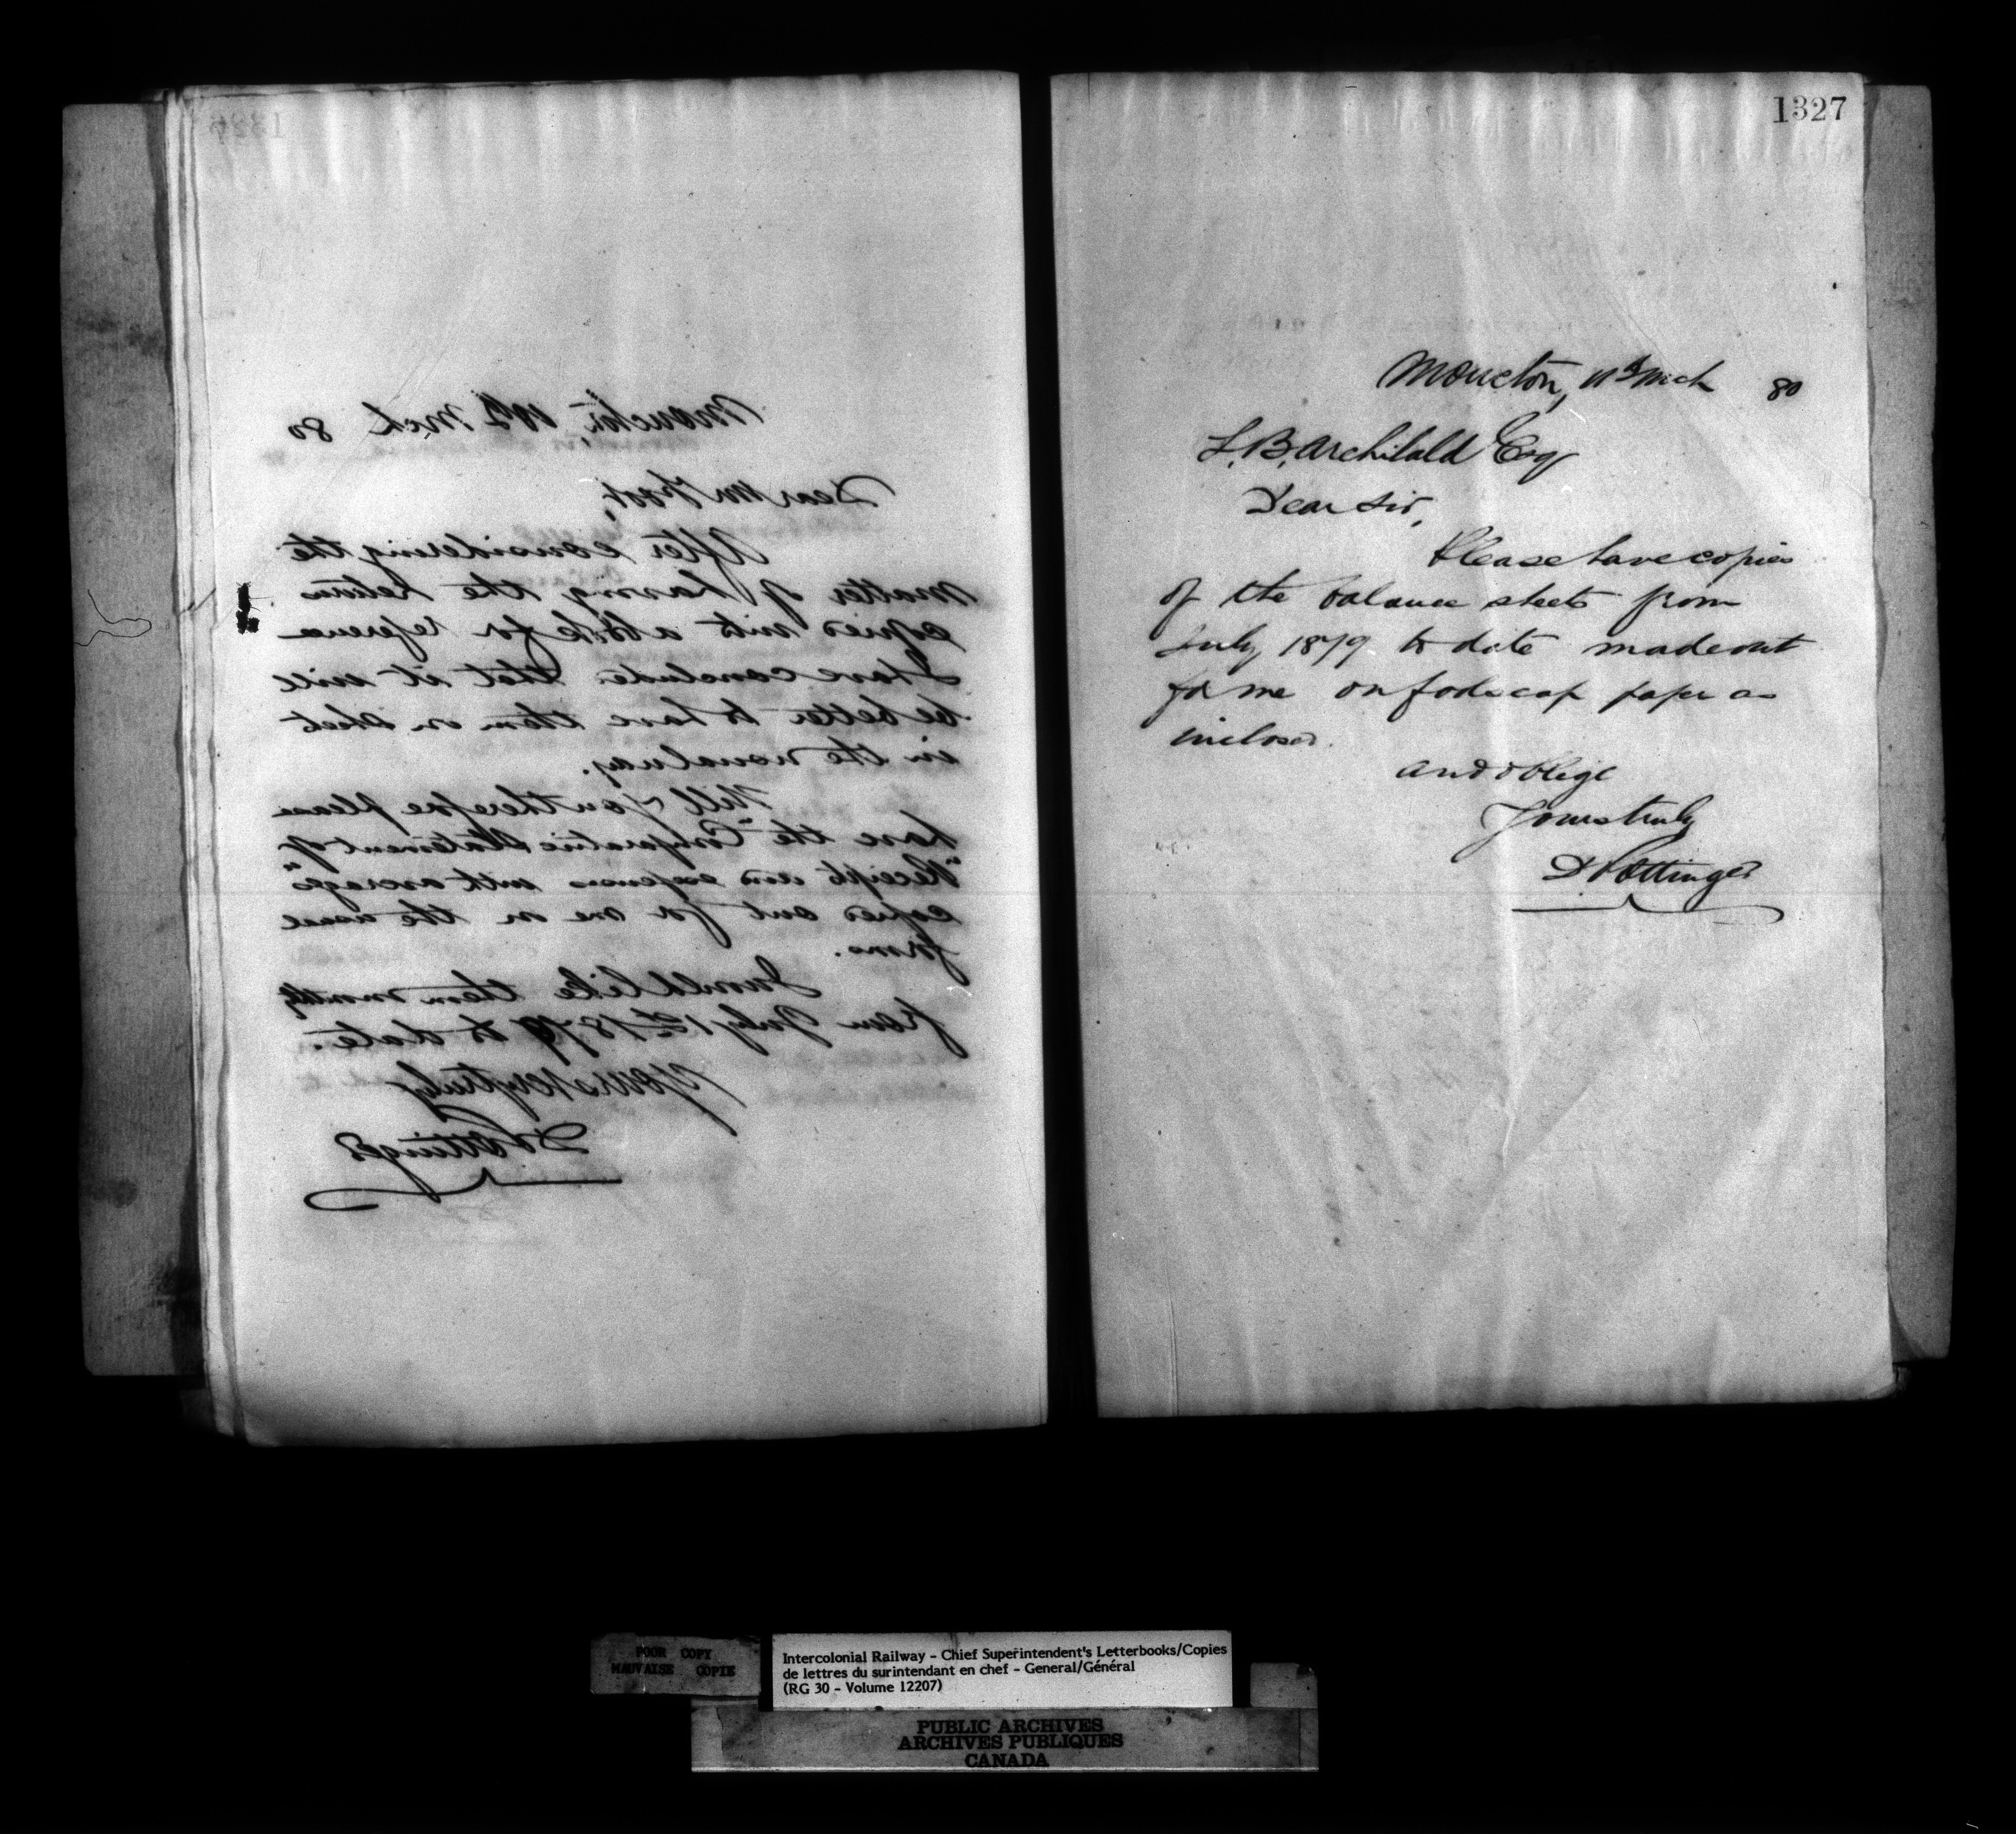 1326
Moncton, 11th Mch 80
Dear Mr Foot,
After considering the
matter of having the returns
copied into a book for reference
I have concluded that it will
be better to have them on sheet
in the usual way.
Will you therefore please
have the "Comparative Statement of
"Receipts and expenses with averages"
copied out for me on the usual
forms.
I would like them monthly
from July 1st 1879 to date.
Yours very truly
D Pottinger
1327
Moncton, 11th Mch 80
L. B. Archibald Esq
Dear Sir,
Please have copies
of the balance sheets from
July 1879 to date made out
for me on foolscap paper as
inclosed.
and oblige
Yours truly
D Pottinger
POOR COPY
MAUVAISE COPIE
Intercolonial Railway - Chief Superintendent's Letterbooks/Copies
de lettres du surintendant en chef - General/Général
(RG 30 - Volume 12207)
PUBLIC ARCHIVES
ARCHIVES PUBLIQUES
CANADA